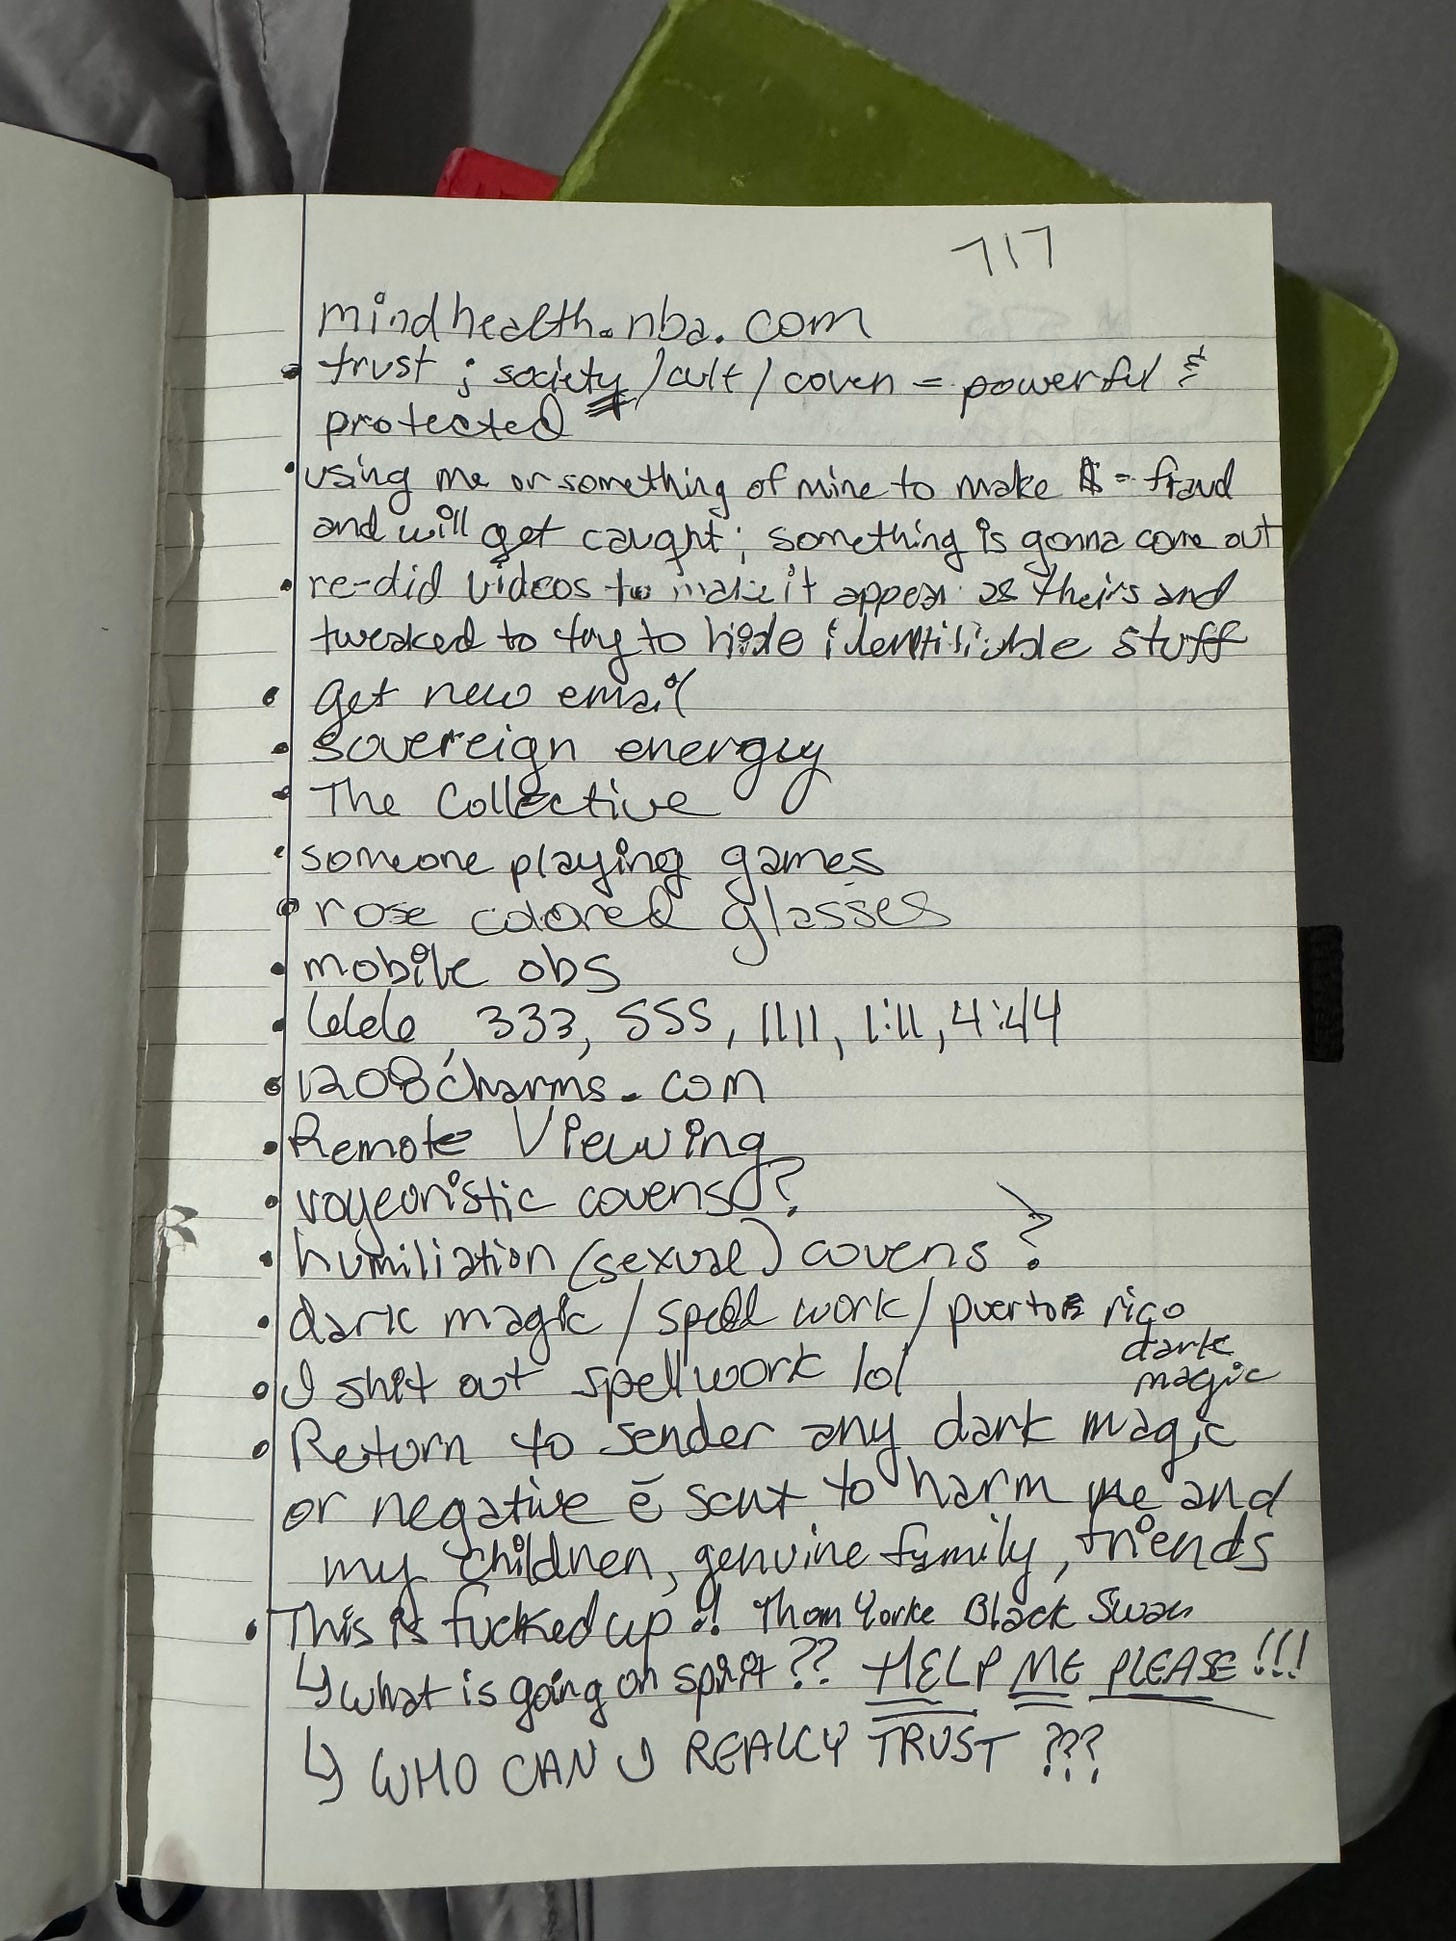 717
mindhealth.nba.com
• trust ; society/cult/coven = powerful &
protected
• using me or something of mine to make $ = fraud
and will get caught; something is gonna come out
• re-did videos to make it appear as theirs and
tweaked to try to hide identifiable stuff
• get new email
• sovereign energy
• The Collective
• someone playing games
• rose colored glasses
• mobile obs
• 666, 333, 555, 1111, 1:11, 4:44
• 1208charms.com
• Remote Viewing
• voyeuristic covens?
• humiliation (sexual) covens?
• dark magic / spell work / puerto rico
dark
magic
• I shit out spellwork lol
• Return to sender any dark magic
or negative ē sent to harm me and
my children, genuine family, friends
• This is fucked up!! Thom Yorke Black Swan
↳ what is going on spirit?? HELP ME PLEASE!!!
↳ WHO CAN I REALLY TRUST ???